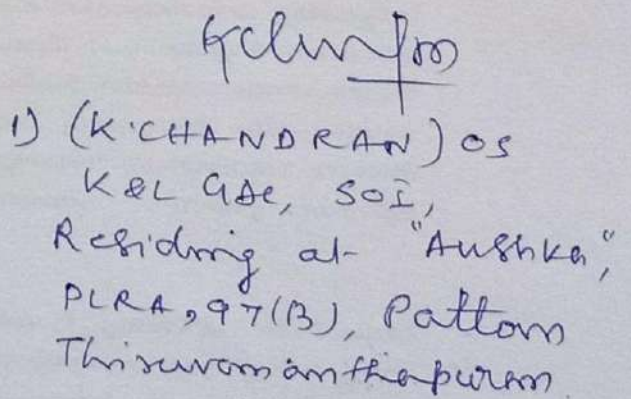 1) (K.CHANDRAN) OS
K&L GDC, SOI,
Residing at "Aushka",
PLRA, 97(B), Pattom
Thiruvananthapuram